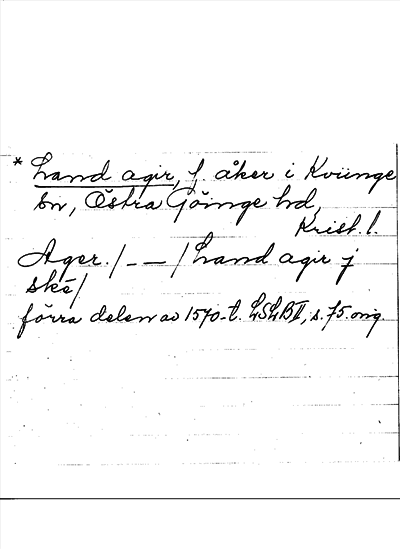 * Land agir, f. åker i Kviinge
sn, Östra Göinge hd,
Krist. l.
Ager. /_ _ _/ Land agir j
ske/
förra delen av 1570-t. LSLB II, s. 75. orig.